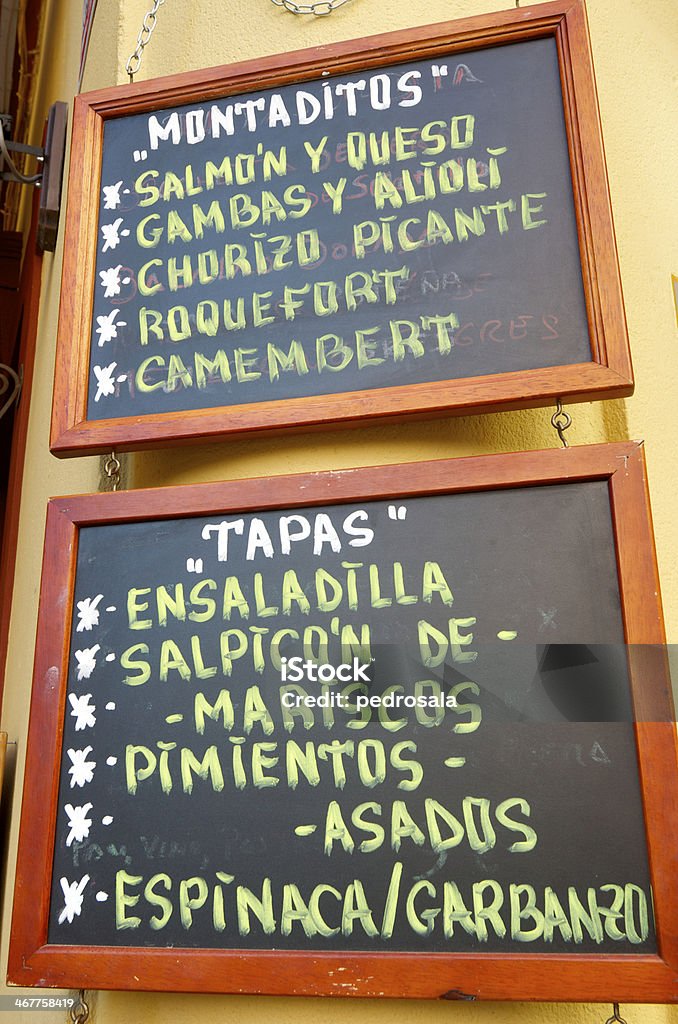 „MONTADITOS"
* - SALMO'N Y QUESO
* - GAMBAS Y ALIOLI
* - CHORIZO PICANTE
* - ROQUEFORT
* - CAMEMBERT
„TAPAS"
* - ENSALADILLA
* - SALPICO'N DE -
* - - MARISCOS
* - PIMIENTOS -
* - - ASADOS
* - ESPINACA/GARBANZO
iStock
Credit: pedrosala
467758419